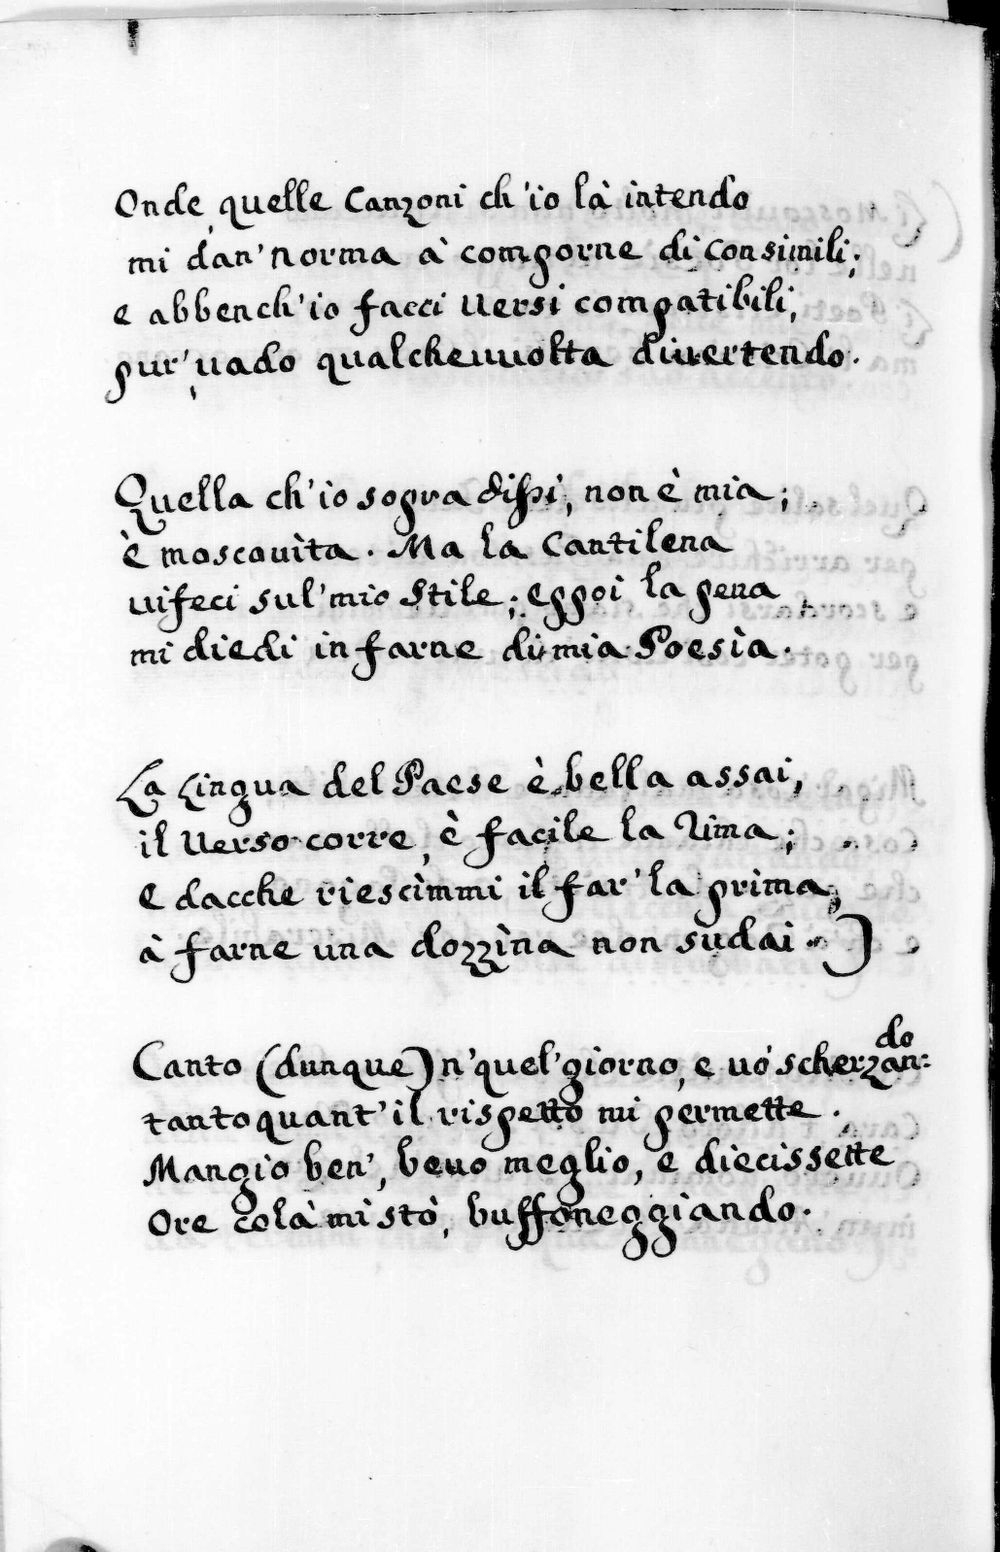 Onde quelle Canzoni ch'io là intendo
mi dan' norma à comporne di consimili;
e abbench'io facci uersi compatibili,
pur' uado qualcheuuolta diuertendo.
Quella ch'io sopra dissi, non è mia;
è moscouìta. Ma la Cantilena
uifeci sul' mio stile; eppoi la pena
mi diedi in farne di mia Poesìa.
La Lingua del Paese è bella assai,
il Uerso corre, è facile la Rima;
e dacche riescìmmi il far' la prima,
à farne una dozzìna non sudai.)
Canto (dunque) n'quel' giorno, e uò scherzan:do
tanto quant' il rispetto mi permette.
Mangio ben', beuo meglio, e diecissette
Ore colà mi stò, buffoneggiando.